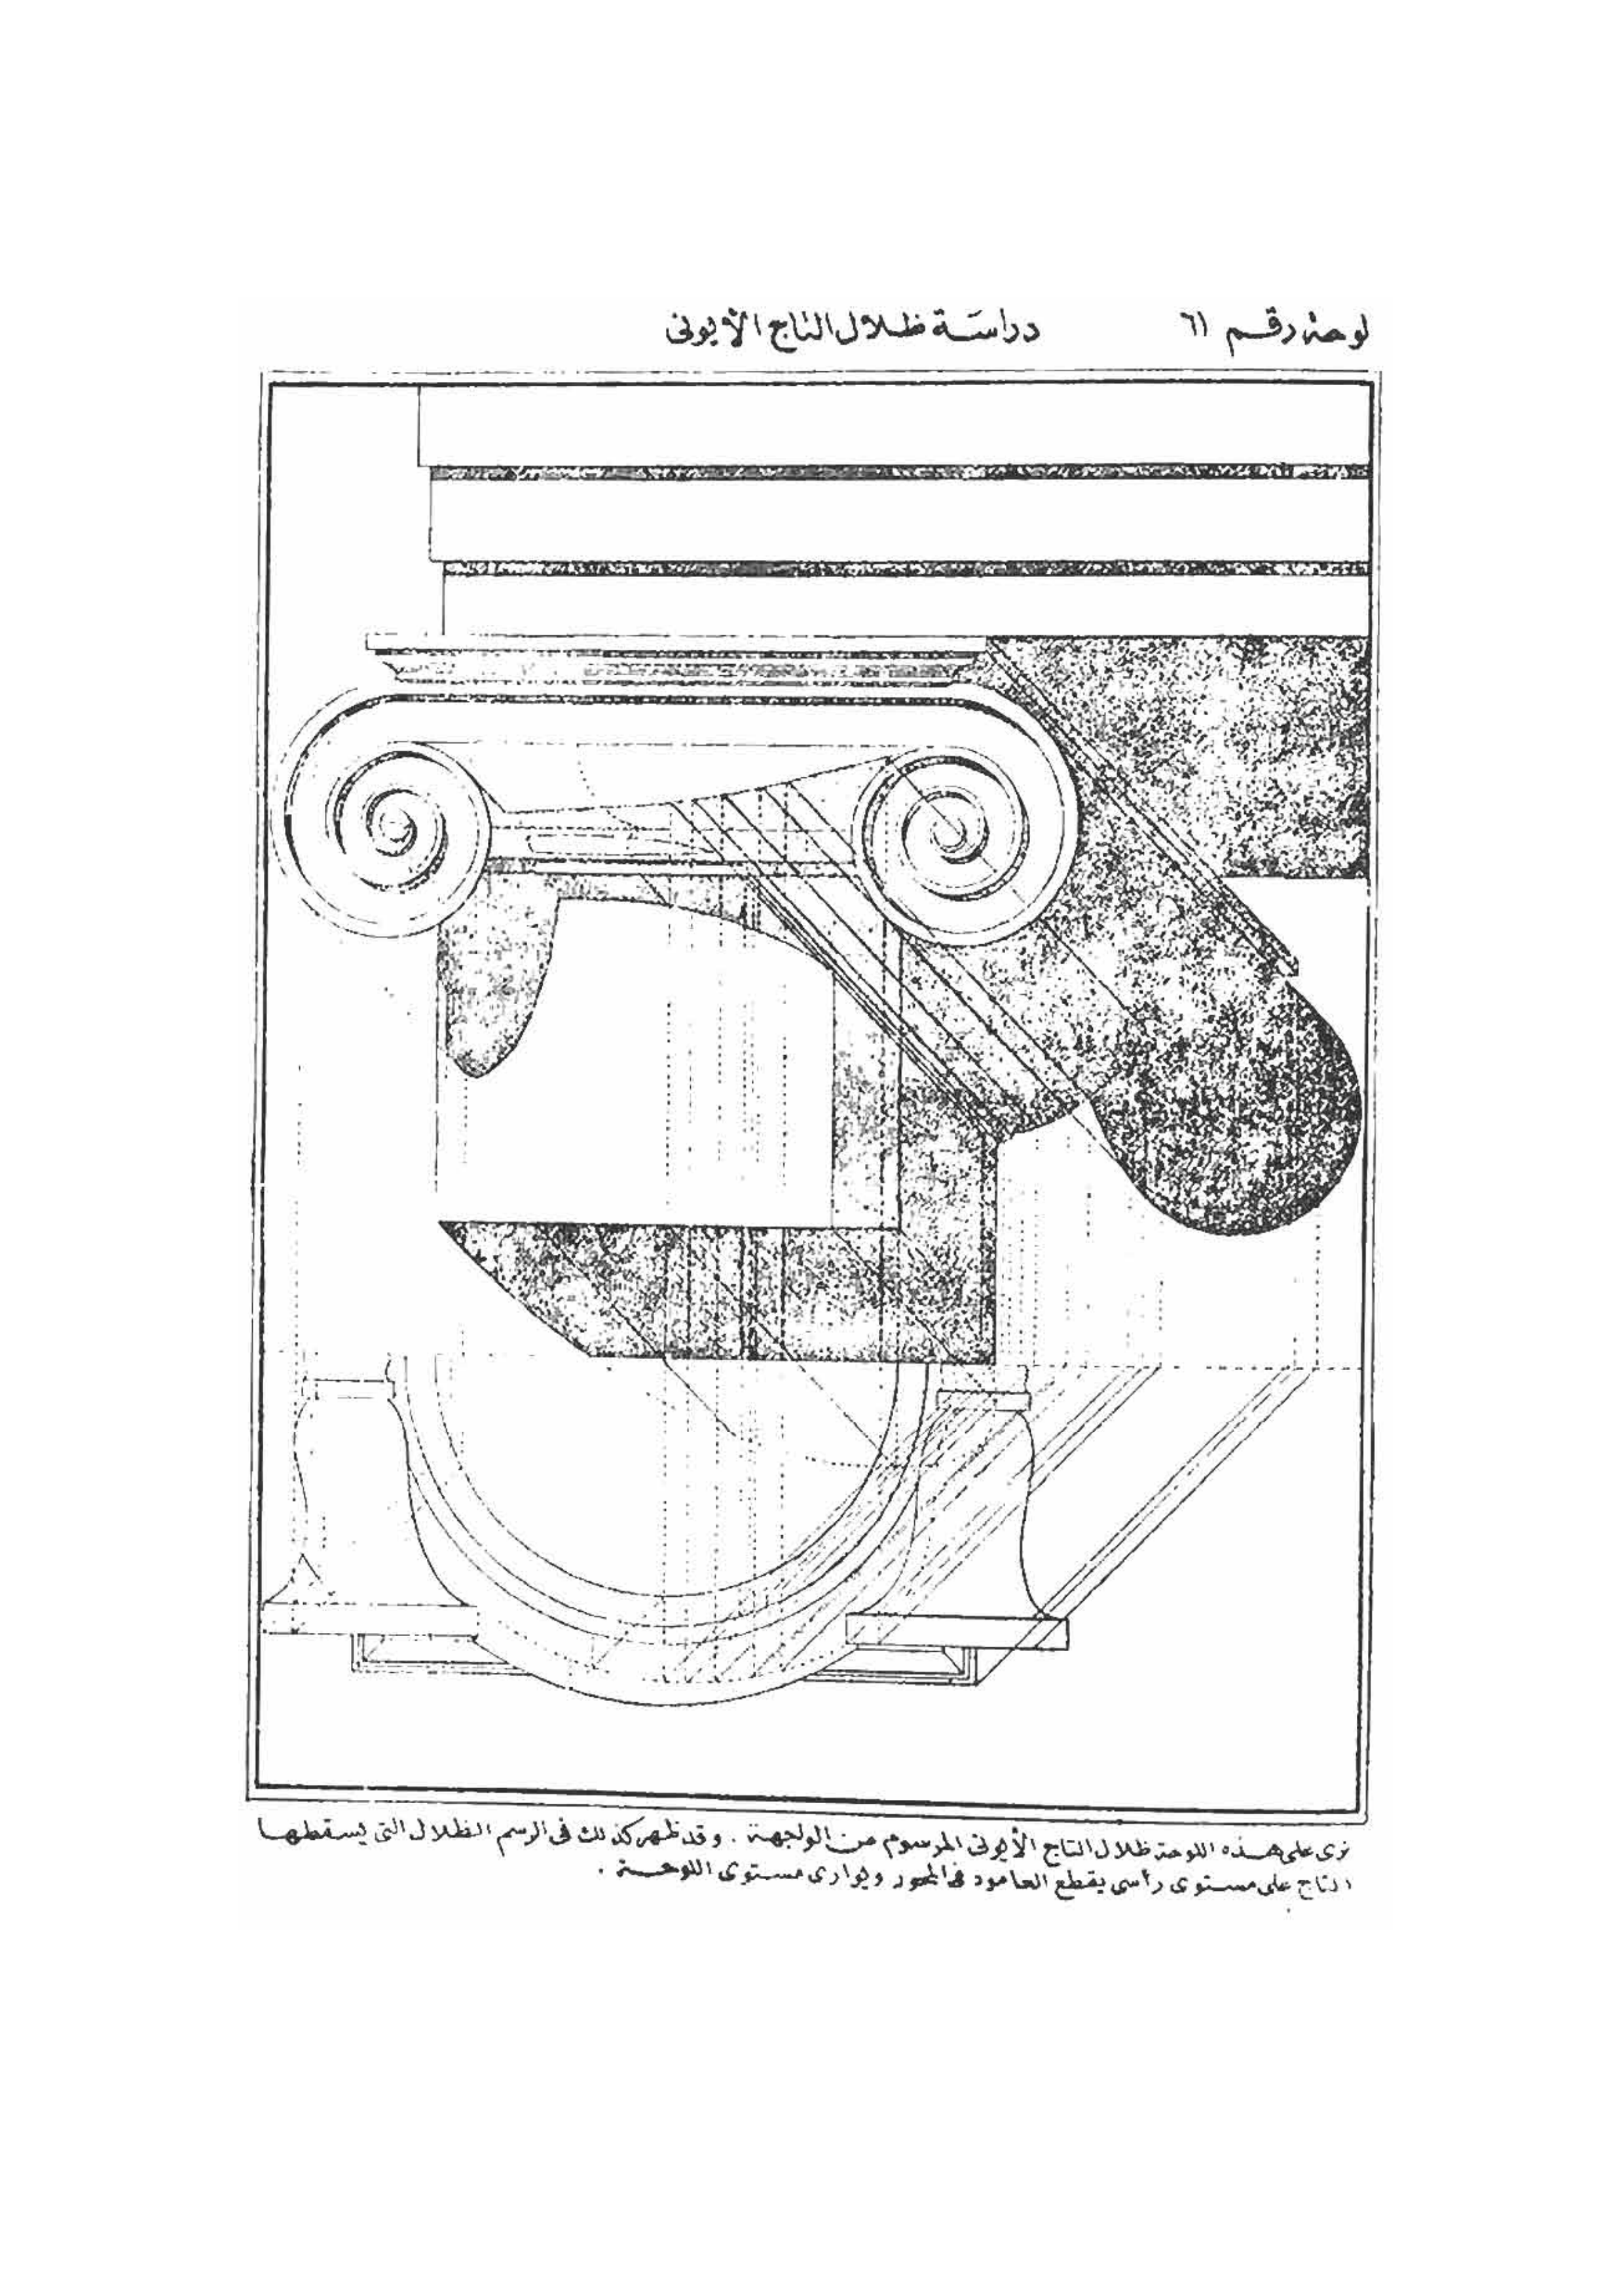 لوحة رقم ٦١
دراسة ظلال التاج الأيونى
نرى على هذه اللوحة ظلال التاج الأيونى المرسوم من الواجهة . وقد ظهر كذلك فى الرسم الظلال التى يسقطها
التاج على مستوى رأسى يقطع العامود فى المحور ويوازى مستوى اللوحة .